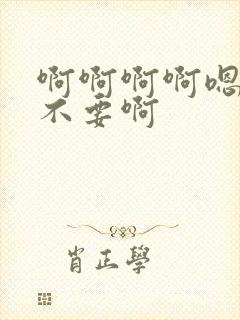 啊啊啊啊嗯
不要啊
肖正学